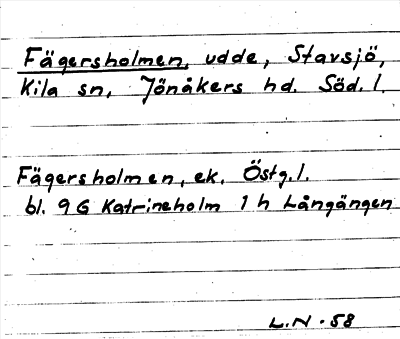 Fägersholmen, udde, Stavsjö,
Kila sn, Jönåkers hd. Söd.l.
Fägersholmen, ek. Östg.l.
bl. 9G Katrineholm 1h Långängen
L.N. 58